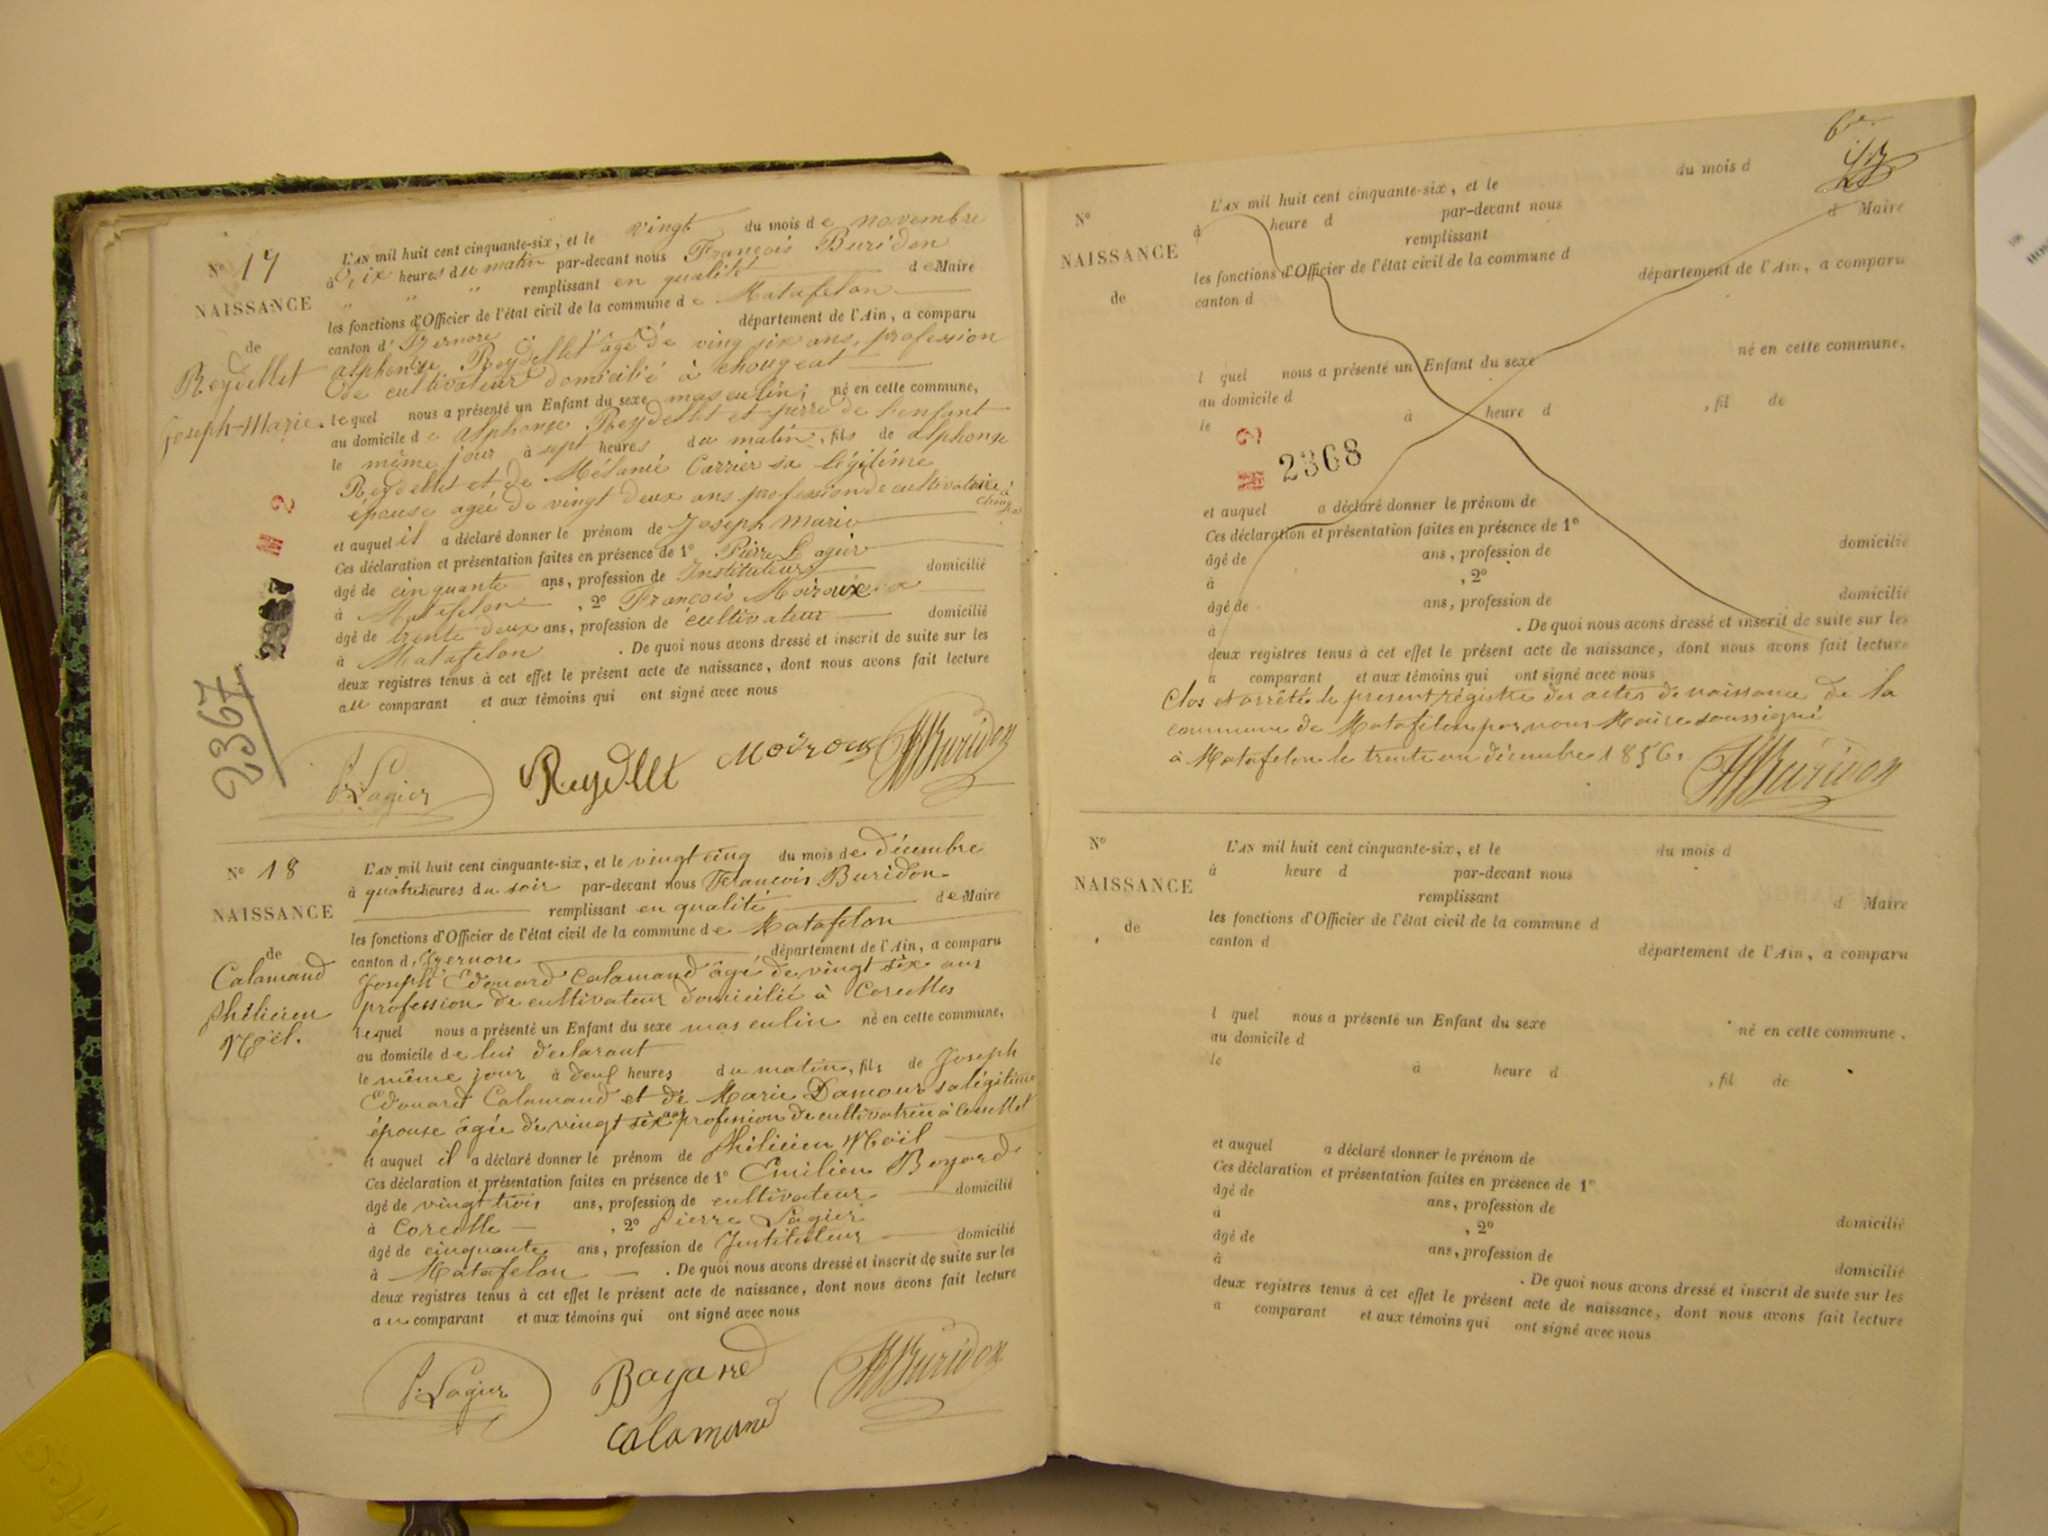 N° 17
NAISSANCE
de
Reydellet
Joseph-Marie.
L'AN mil huit cent cinquante-six, et le vingt du mois de novembre
à Dix heures du matin par-devant nous François Buridon
" " " remplissant en qualité de Maire
les fonctions d'Officier de l'état civil de la commune de Matafelon
canton d'Izernore département de l'Ain, a comparu
alphonse Reydellet âgé de ving six ans, profession
de cultivateur domicilié à Chougeat
lequel nous a présenté un Enfant du sexe masculin, né en cette commune,
au domicile de alphonse Reydellet et perre de l'enfant
le même jour à sept heures du matin, fils de alphonse
Reydellet et de Mélanie Carrier sa légitime
épouse agée de vingt deux ans profession de cultivatrice à
et auquel il a déclaré donner le prénom de Joseph Marie
Ces déclaration et présentation faites en présence de 1° Pierre Lagier
âgé de cinquante ans, profession de Instituteur domicilié
à Matafelon , 2° François Moiroux
âgé de trente deux ans, profession de cultivateur domicilié
à Matafelon . De quoi nous avons dressé et inscrit de suite sur les
deux registres tenus à cet effet le présent acte de naissance, dont nous avons fait lecture
au comparant et aux témoins qui ont signé avec nous
2367
P. Lagier Reydellet Moiroux Buridon
N° 18
NAISSANCE
de
Calamand
Phélicien
Noël.
L'AN mil huit cent cinquante-six, et le vingt cinq du mois de décembre
à quatre heures du soir par-devant nous François Buridon
remplissant en qualité de Maire
les fonctions d'Officier de l'état civil de la commune de Matafelon
canton d'Izernore département de l'Ain, a comparu
Joseph Edouard Calamand âgé de vingt six ans
profession de cultivateur domicilié à Corcelles
lequel nous a présenté un Enfant du sexe masculin né en cette commune,
au domicile de lui déclarant
le même jour à deux heures du matin, fils de Joseph
Edouard Calamand et de Marie Damour sa légitime
épouse âgée de vingt six ans profession de cultivatrice à Corcelles
et auquel il a déclaré donner le prénom de Phélicien Noël
Ces déclaration et présentation faites en présence de 1° Emilien Bayard
âgé de vingt trois ans, profession de cultivateur domicilié
à Corcelle , 2° Pierre Lagier
âgé de cinquante ans, profession de Instituteur domicilié
à Matafelon . De quoi nous avons dressé et inscrit de suite sur les
deux registres tenus à cet effet le présent acte de naissance, dont nous avons fait lecture
au comparant et aux témoins qui ont signé avec nous
P. Lagier Bayard Buridon
Calamand
N°
NAISSANCE
de
L'AN mil huit cent cinquante-six, et le du mois d
à heure d par-devant nous
remplissant d Maire
les fonctions d'Officier de l'état civil de la commune d
canton d département de l'Ain, a comparu
l quel nous a présenté un Enfant du sexe né en cette commune,
au domicile d
le à heure d , fil de
2368
et auquel a déclaré donner le prénom de
Ces déclaration et présentation faites en présence de 1°
âgé de ans, profession de domicilié
à , 2°
âgé de ans, profession de domicilié
à . De quoi nous avons dressé et inscrit de suite sur les
deux registres tenus à cet effet le présent acte de naissance, dont nous avons fait lecture
a comparant et aux témoins qui ont signé avec nous
Clos et arrêté le present régistre des actes de naissance de la
commune de Matafelon par nous Maire soussigné
à Matafelon le trente un décembre 1856.
Buridon
N°
NAISSANCE
de
L'AN mil huit cent cinquante-six, et le du mois d
à heure d par-devant nous
remplissant d Maire
les fonctions d'Officier de l'état civil de la commune d
canton d département de l'Ain, a comparu
l quel nous a présenté un Enfant du sexe né en cette commune.
au domicile d
le à heure d , fil de
et auquel a déclaré donner le prénom de
Ces déclaration et présentation faites en présence de 1°
âgé de ans, profession de
à , 2° domicilié
âgé de ans, profession de
à domicilié
. De quoi nous avons dressé et inscrit de suite sur les
deux registres tenus à cet effet le présent acte de naissance, dont nous avons fait lecture
a comparant et aux témoins qui ont signé avec nous